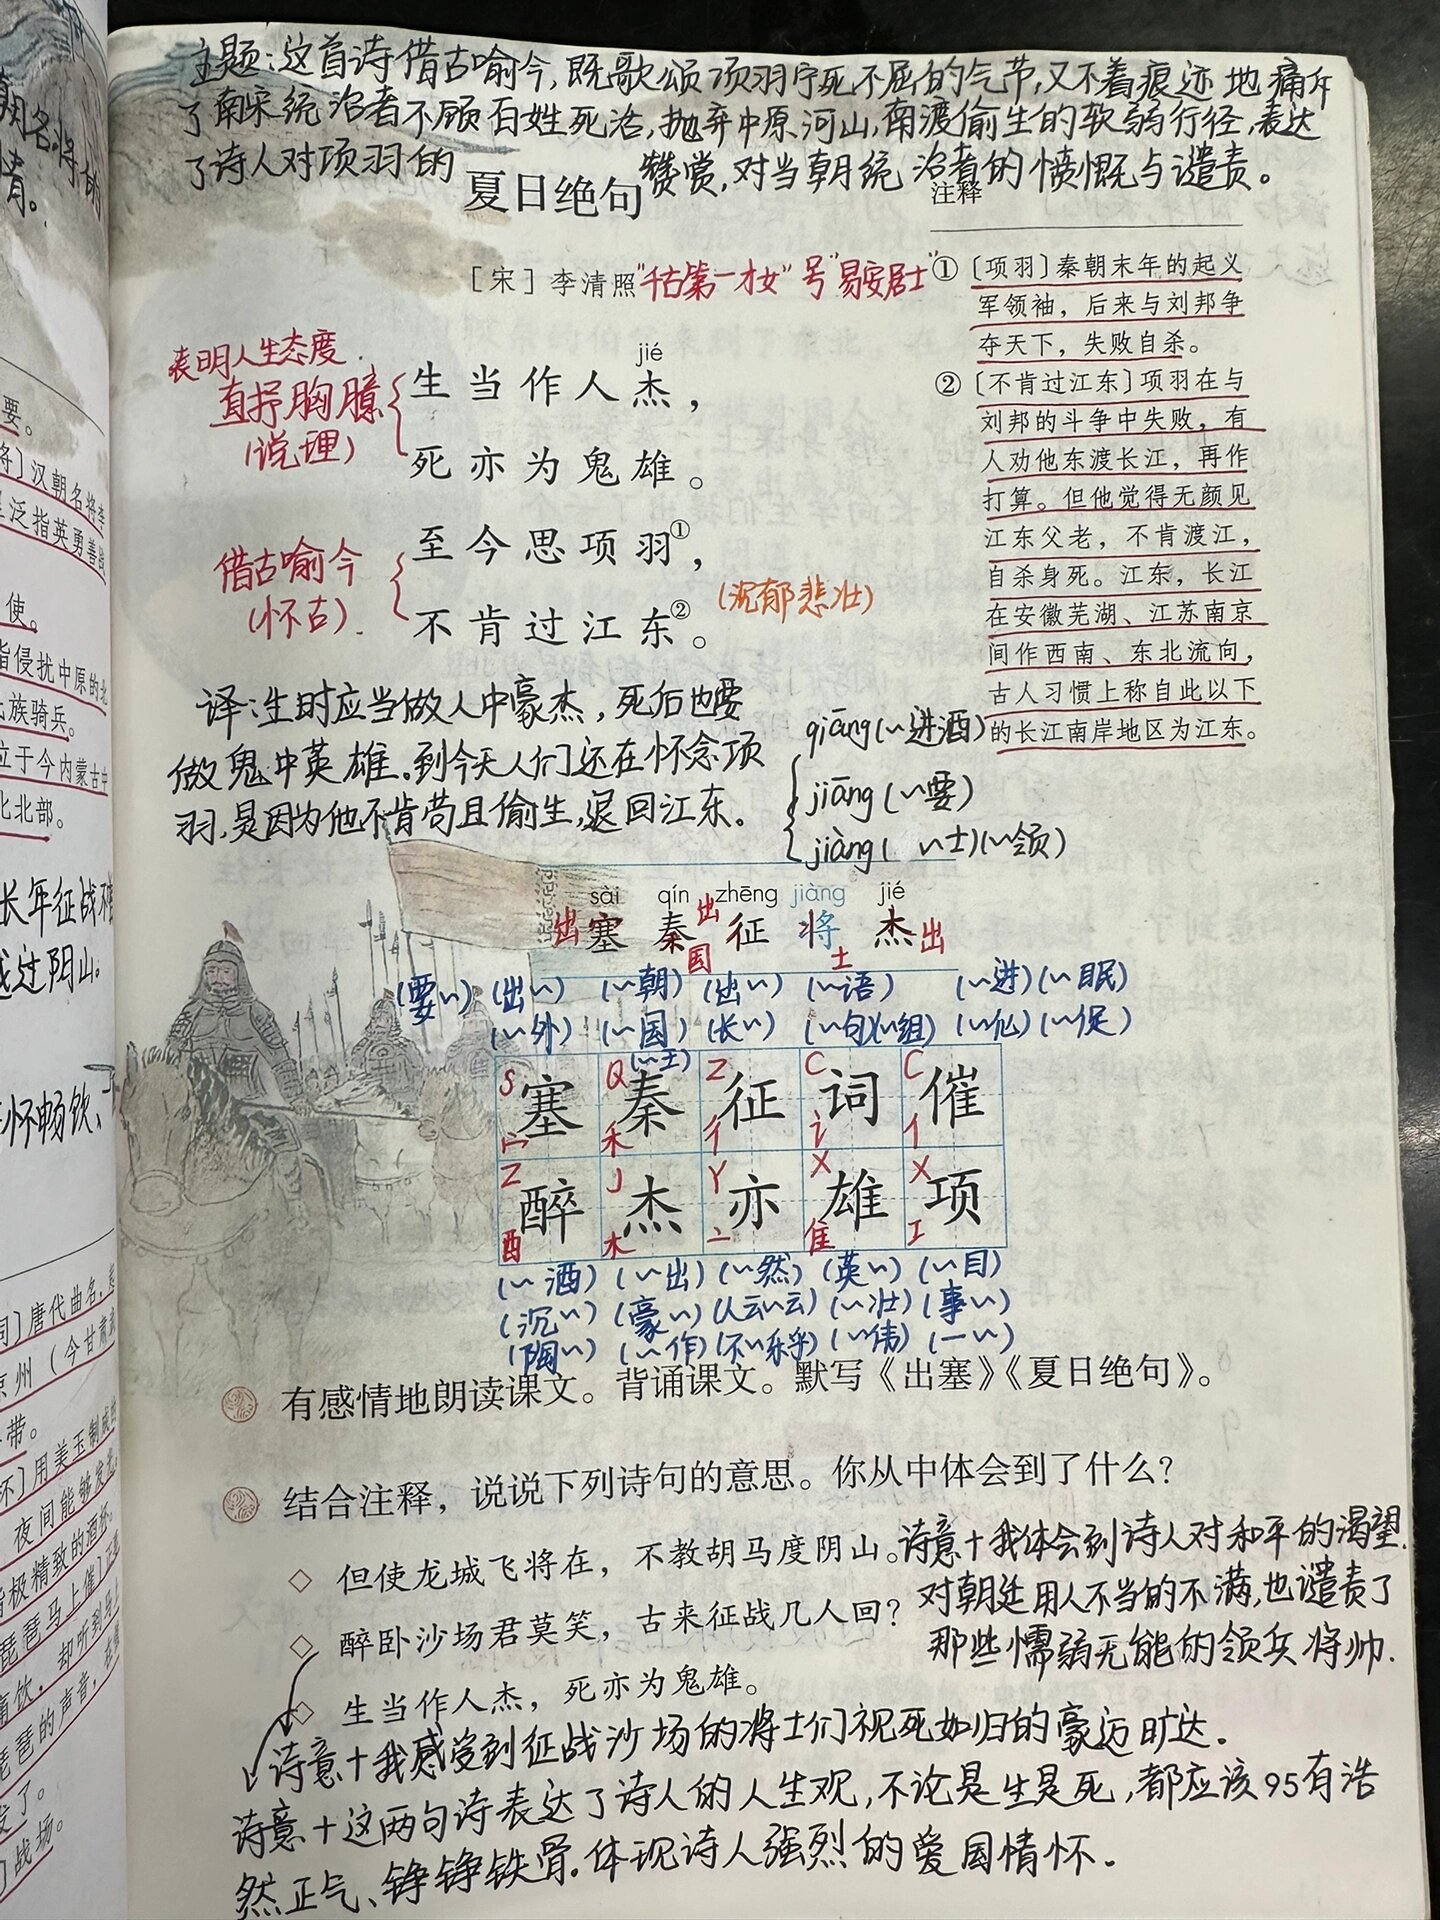 主题：这首诗借古喻今，既歌颂项羽宁死不屈的气节，又不着痕迹地痛斥
了南宋统治者不顾百姓死活，抛弃中原河山，南渡偷生的软弱行径，表达
了诗人对项羽的赞赏，对当朝统治者的愤慨与谴责。
夏日绝句
注释
［宋］李清照"千古第一才女"号"易安居士"
表明人生态度
直抒胸臆
(说理)
jié
生当作人杰，
死亦为鬼雄。
借古喻今
(怀古)
至今思项羽①，
不肯过江东②。
(沉郁悲壮)
①［项羽］秦朝末年的起义
军领袖，后来与刘邦争
夺天下，失败自杀。
②［不肯过江东］项羽在与
刘邦的斗争中失败，有
人劝他东渡长江，再作
打算。但他觉得无颜见
江东父老，不肯渡江，
自杀身死。江东，长江
在安徽芜湖、江苏南京
间作西南、东北流向，
古人习惯上称自此以下
的长江南岸地区为江东。
译：生时应当做人中豪杰，死后也要
做鬼中英雄。到今天人们还在怀念项
羽，是因为他不肯苟且偷生，退回江东。
qiāng(〜进酒)
jiāng(〜要)
jiàng( 〜士)(〜领)
sài qín zhēng jiàng jié
出塞 秦国 出征 将士 杰出
(要〜) (出〜) (〜朝) (出〜) (〜语) (〜进) (〜眠)
(〜外) (〜国) (长〜) (〜句)(〜组) (〜化) (〜促)
(〜土)
S Q Z C C
塞 秦 征 词 催
宀 禾 彳 讠 亻
Z J Y X X
醉 杰 亦 雄 项
酉 木 亠 隹 工
(〜酒) (〜出) (〜然) (英〜) (〜目)
(沉〜) (豪〜) (人云〜云) (〜壮) (事〜)
(陶〜) (〜作) (不〜乐乎) (〜伟) (一〜)
有感情地朗读课文。背诵课文。默写《出塞》《夏日绝句》。
结合注释，说说下列诗句的意思。你从中体会到了什么？
◇ 但使龙城飞将在，不教胡马度阴山。
诗意+我体会到诗人对和平的渴望.
对朝廷用人不当的不满，也谴责了
那些懦弱无能的领兵将帅.
◇ 醉卧沙场君莫笑，古来征战几人回？
◇ 生当作人杰，死亦为鬼雄。
诗意+我感受到征战沙场的将士们视死如归的豪迈旷达。
诗意+这两句诗表达了诗人的人生观，不论是生是死，都应该95有浩
然正气、铮铮铁骨。体现诗人强烈的爱国情怀.
朝名将的
情。
要。
将］汉朝名将李
泛指英勇善战
使。
指侵扰中原的北
民族骑兵。
立于今内蒙古中
北北部。
长年征战
越过阴山。
怀畅饮、
词］唐代曲名，起
凉州（今甘肃武
带。
杯］用美玉制成的
夜间能够发光。
极精致的酒杯。
琵琶马上催］正要
痛饮，却听到马上
琵琶的声音，
发了。
战场。